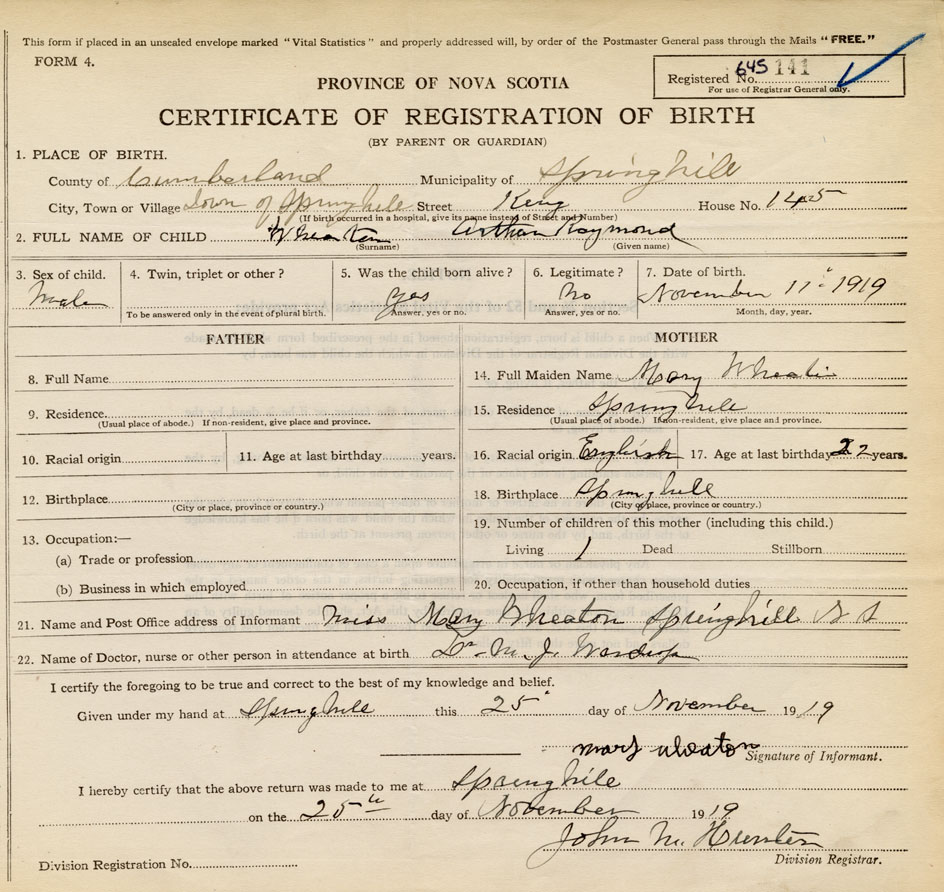 This form if placed in an unsealed envelope marked "Vital Statistics" and properly addressed will, by order of the Postmaster General pass through the Mails "FREE."
FORM 4.
Registered No. 645 141
For use of Registrar General only.
PROVINCE OF NOVA SCOTIA
CERTIFICATE OF REGISTRATION OF BIRTH
(BY PARENT OR GUARDIAN)
1. PLACE OF BIRTH.
County of Cumberland Municipality of Springhill
City, Town or Village Town of Springhill Street King House No. 145
(If birth occurred in a hospital, give its name instead of Street and Number)
2. FULL NAME OF CHILD Wheaton Arthur Raymond
(Surname) (Given name)
3. Sex of child. 4. Twin, triplet or other? 5. Was the child born alive? 6. Legitimate? 7. Date of birth.
Male yes No November 11" 1919
To be answered only in the event of plural birth. Answer, yes or no. Answer, yes or no. Month, day, year.
FATHER
8. Full Name
9. Residence
(Usual place of abode.) If non-resident, give place and province.
10. Racial origin 11. Age at last birthday years.
12. Birthplace
(City or place, province or country.)
13. Occupation:—
(a) Trade or profession
(b) Business in which employed
MOTHER
14. Full Maiden Name Mary Wheaton
15. Residence Springhill
(Usual place of abode.) If non-resident, give place and province.
16. Racial origin English 17. Age at last birthday 22 years.
18. Birthplace Springhill
(City or place, province or country.)
19. Number of children of this mother (including this child.)
Living 1 Dead Stillborn
20. Occupation, if other than household duties
21. Name and Post Office address of Informant Miss Mary Wheaton Springhill N S
22. Name of Doctor, nurse or other person in attendance at birth Dr. M. J. Wardrope
I certify the foregoing to be true and correct to the best of my knowledge and belief.
Given under my hand at Springhill this 25" day of November 1919
mary wheaton
Signature of Informant.
I hereby certify that the above return was made to me at Springhill
on the 25th day of November 1919
John M. Hunter
Division Registrar.
Division Registration No.